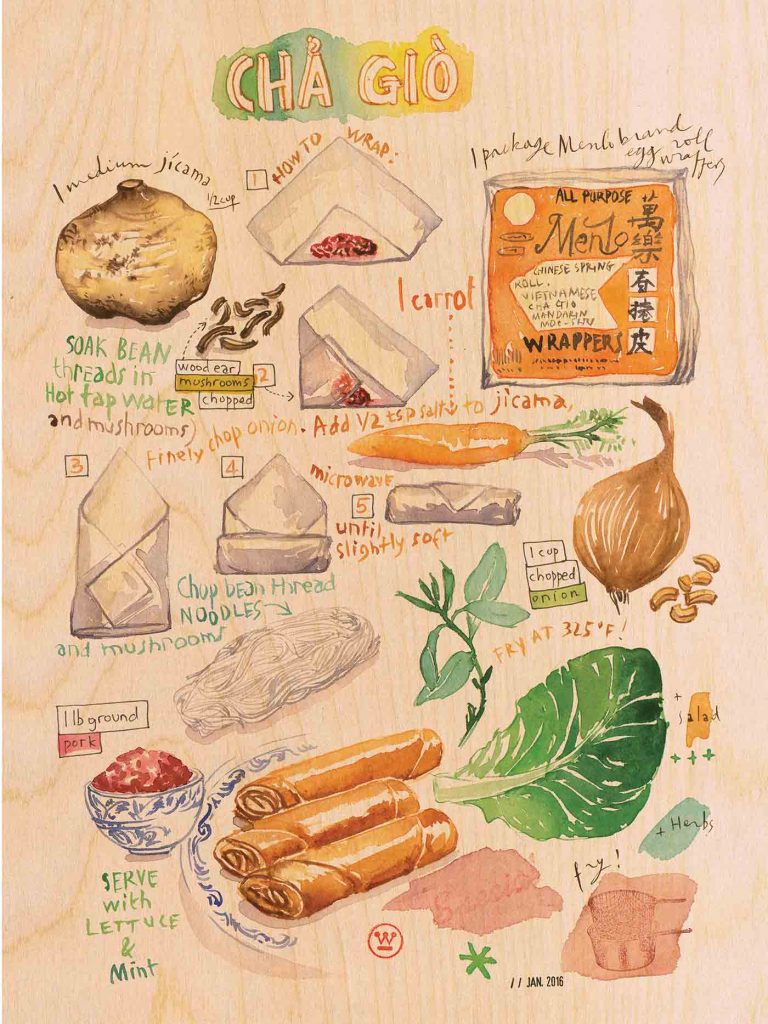 CHẢ GIÒ
1 medium jícama
1/2 cup
1
HOW TO WRAP:
1 package Menlo brand
egg roll
wrappers
ALL PURPOSE
Menlo
萬樂
春捲皮
CHINESE SPRING
ROLL.
VIETNAMESE
CHA GIO
MANDARIN
MOO-SHU
WRAPPERS
1 carrot
SOAK BEAN
threads in
Hot tap WATER
and mushrooms)
wood ear
mushrooms
chopped
2
finely chop onion. Add 1/2 tsp salt to jícama,
3
4
microwave
5
until
slightly soft
1 cup
chopped
onion
Chop bean thread
NOODLES
and mushrooms
FRY AT 325°F!
1 lb ground
pork
+
Salad
+++
+ Herbs
fry!
SERVE
with
LETTUCE
&
Mint
// JAN. 2016